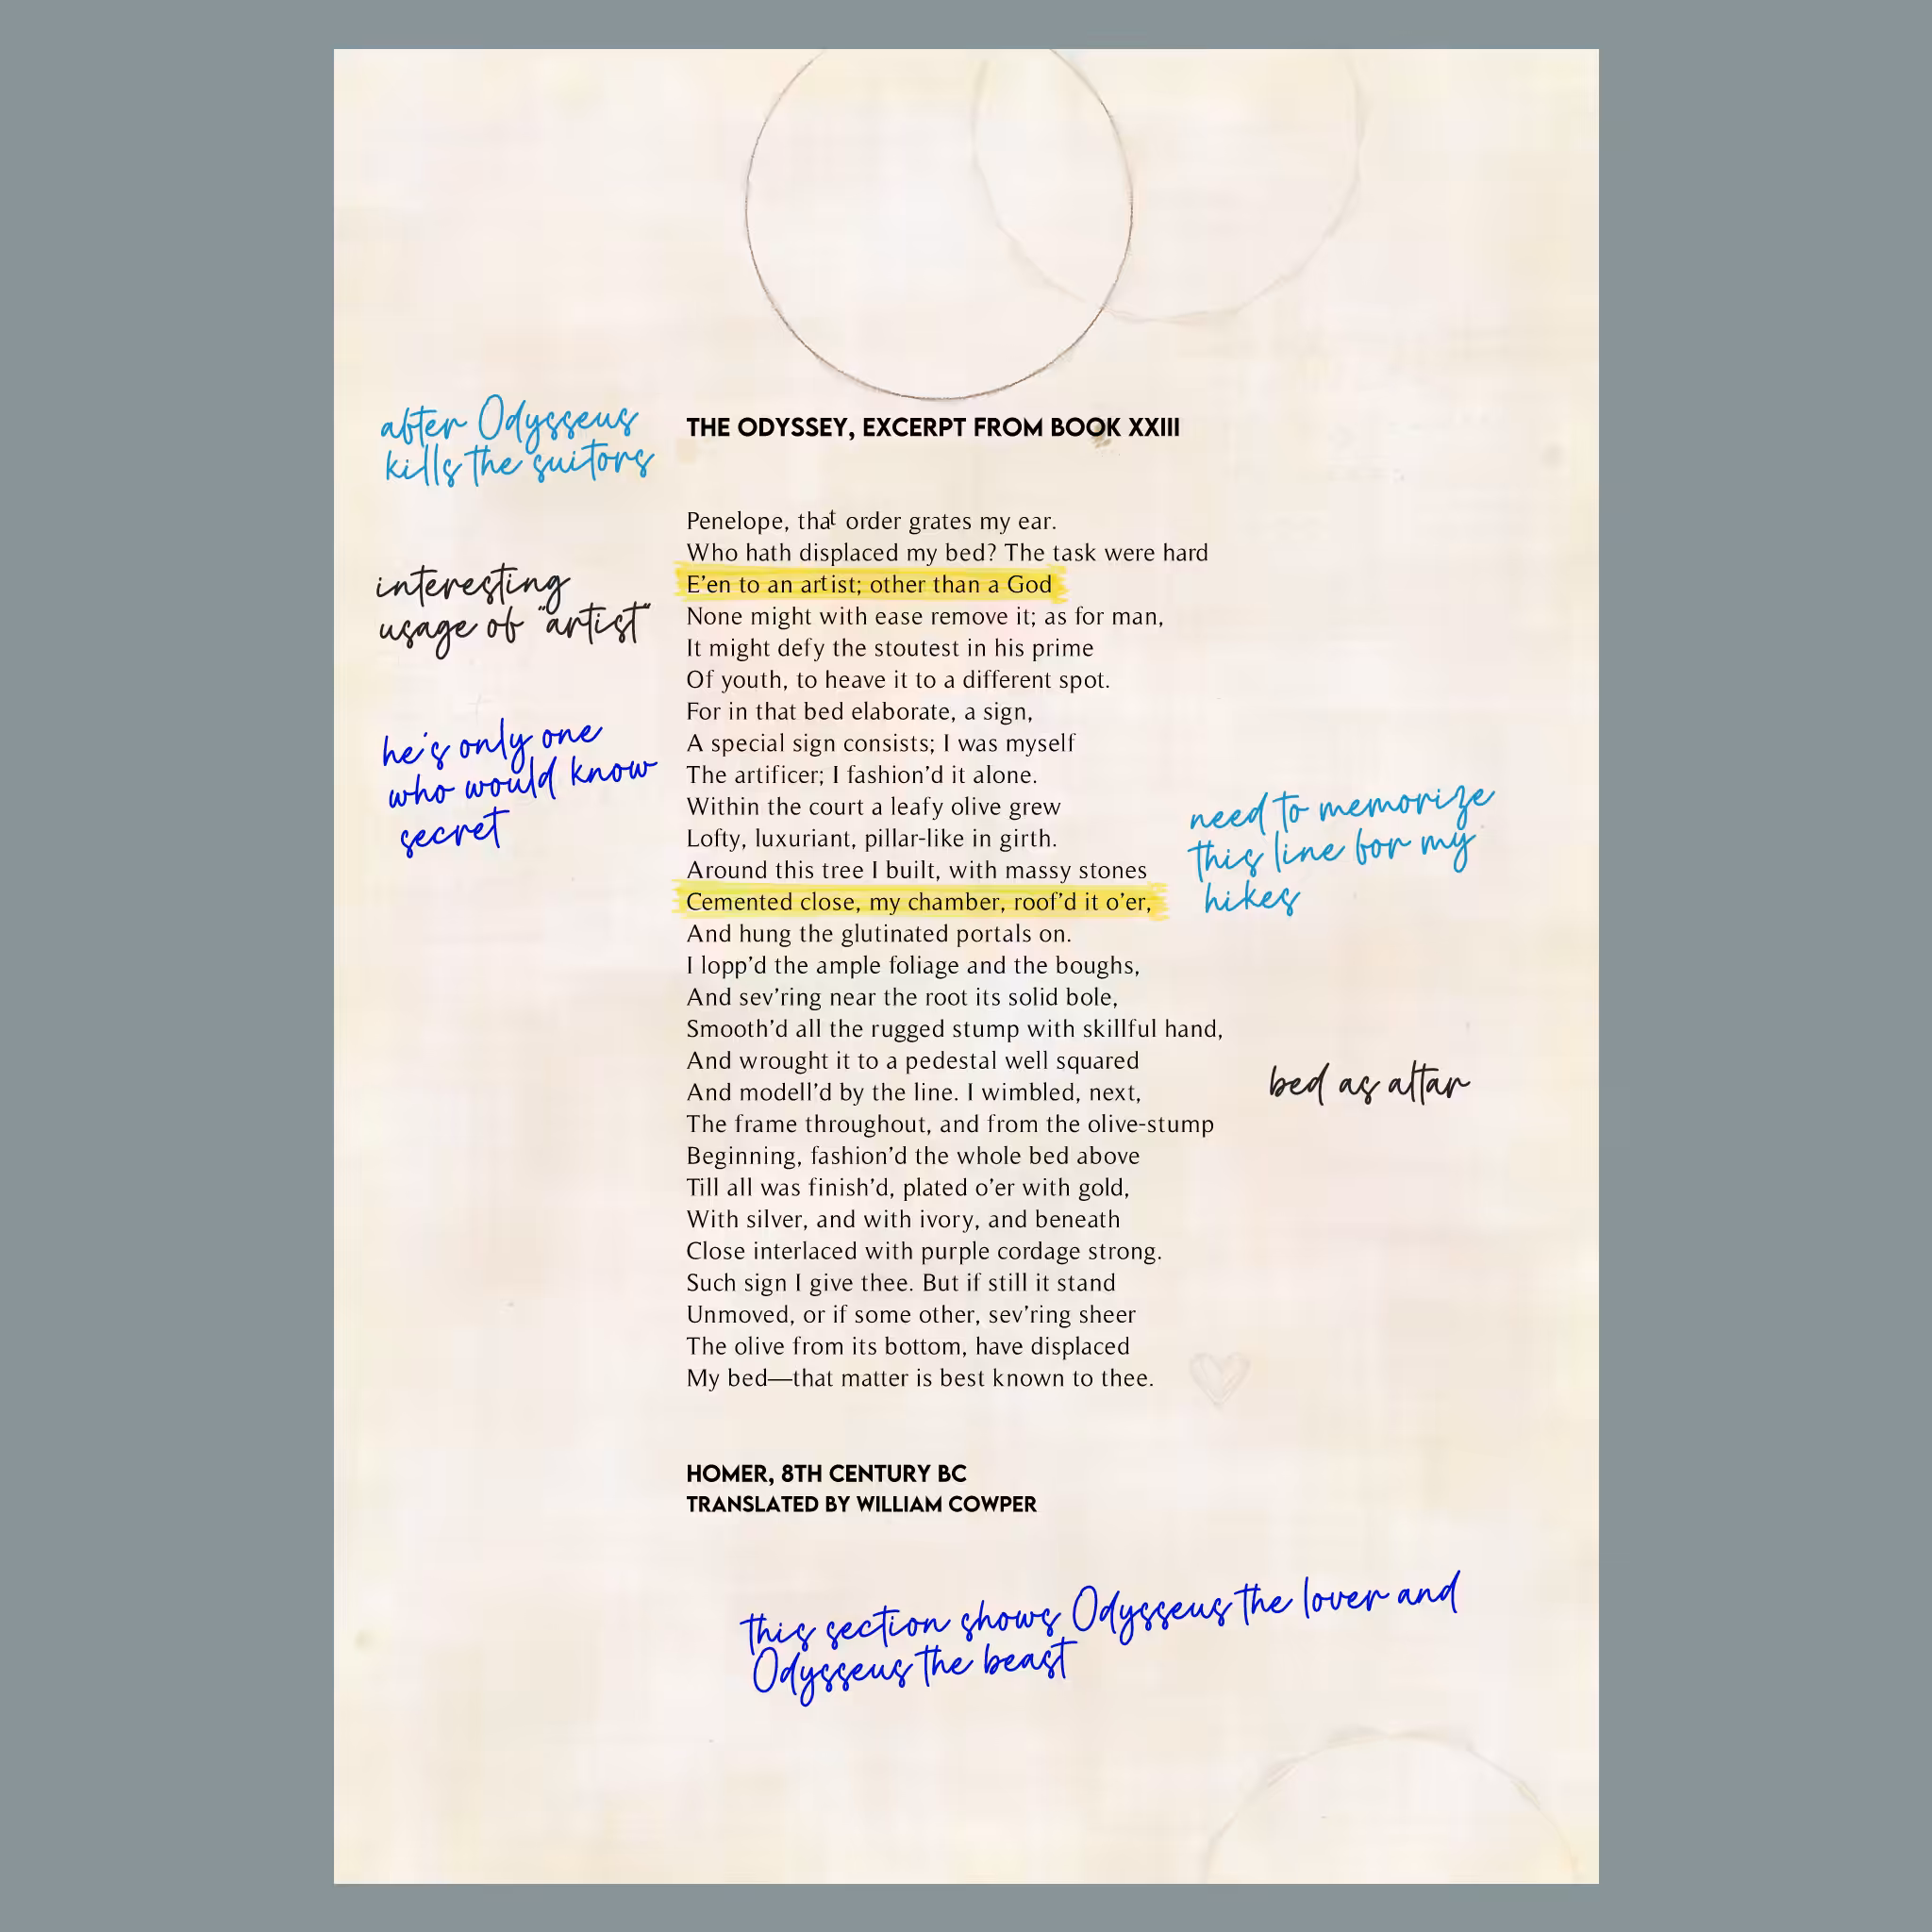 after Odysseus
kills the suitors
THE ODYSSEY, EXCERPT FROM BOOK XXIII
Penelope, that order grates my ear.
Who hath displaced my bed? The task were hard
E’en to an artist; other than a God
None might with ease remove it; as for man,
It might defy the stoutest in his prime
Of youth, to heave it to a different spot.
For in that bed elaborate, a sign,
A special sign consists; I was myself
The artificer; I fashion’d it alone.
Within the court a leafy olive grew
Lofty, luxuriant, pillar-like in girth.
Around this tree I built, with massy stones
Cemented close, my chamber, roof’d it o’er,
And hung the glutinated portals on.
I lopp’d the ample foliage and the boughs,
And sev’ring near the root its solid bole,
Smooth’d all the rugged stump with skillful hand,
And wrought it to a pedestal well squared
And modell’d by the line. I wimbled, next,
The frame throughout, and from the olive-stump
Beginning, fashion’d the whole bed above
Till all was finish’d, plated o’er with gold,
With silver, and with ivory, and beneath
Close interlaced with purple cordage strong.
Such sign I give thee. But if still it stand
Unmoved, or if some other, sev’ring sheer
The olive from its bottom, have displaced
My bed—that matter is best known to thee.
interesting
usage of "artist"
he's only one
who would know
secret
need to memorize
this line for my
hikes
bed as altar
HOMER, 8TH CENTURY BC
TRANSLATED BY WILLIAM COWPER
this section shows Odysseus the lover and
Odysseus the beast